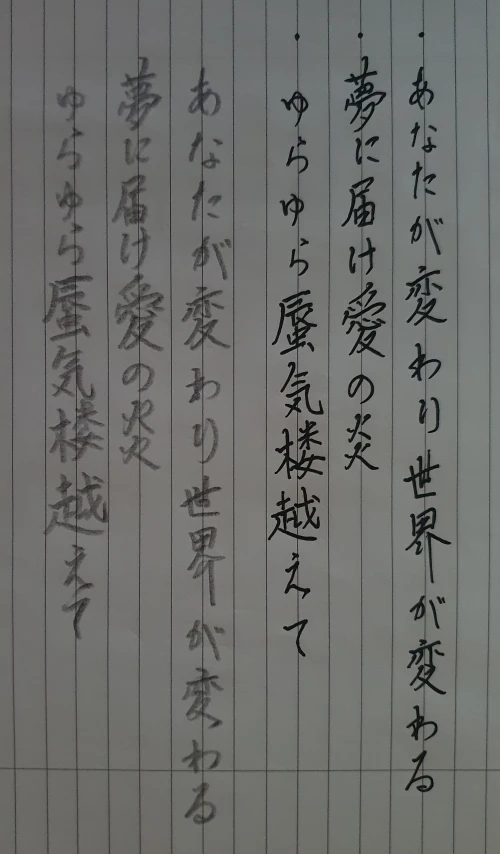 ・あなたが変わり世界が変わる
・夢に届け愛の炎
・ゆらゆら蜃気楼越えて
あなたが変わり世界が変わる
夢に届け愛の炎
ゆらゆら蜃気楼越えて